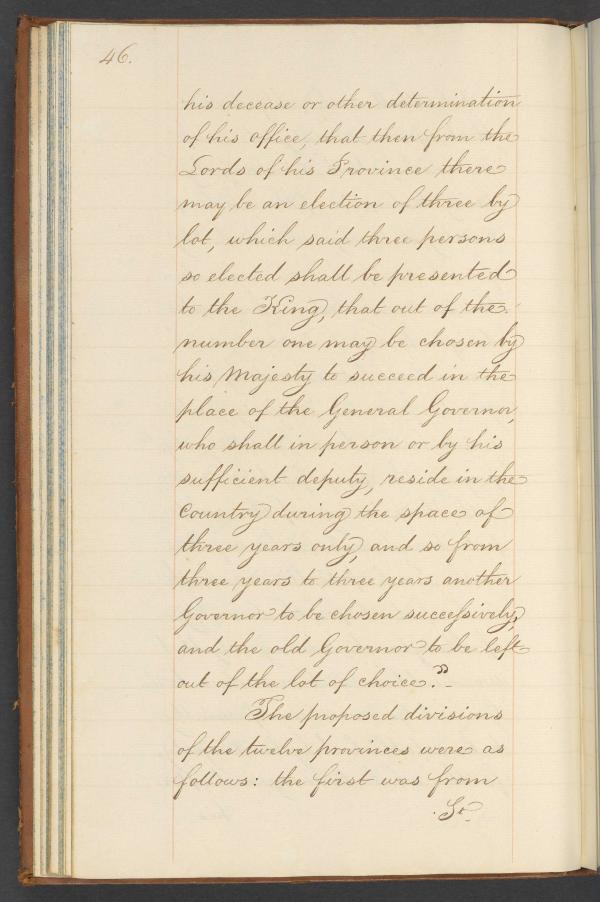 46.
his decease or other determination
of his office, that then from the
Lords of his Province there
may be an election of three by
lot, which said three persons
so elected shall be presented
to the King, that out of the
number one may be chosen by
his Majesty to succeed in the
place of the General Governor,
who shall in person or by his
sufficient deputy, reside in the
Country during the space of
three years only, and so from
three years to three years another
Governor to be chosen successively,
and the old Governor to be left
out of the lot of choice."
The proposed divisions
of the twelve provinces were as
follows: the first was from
St.